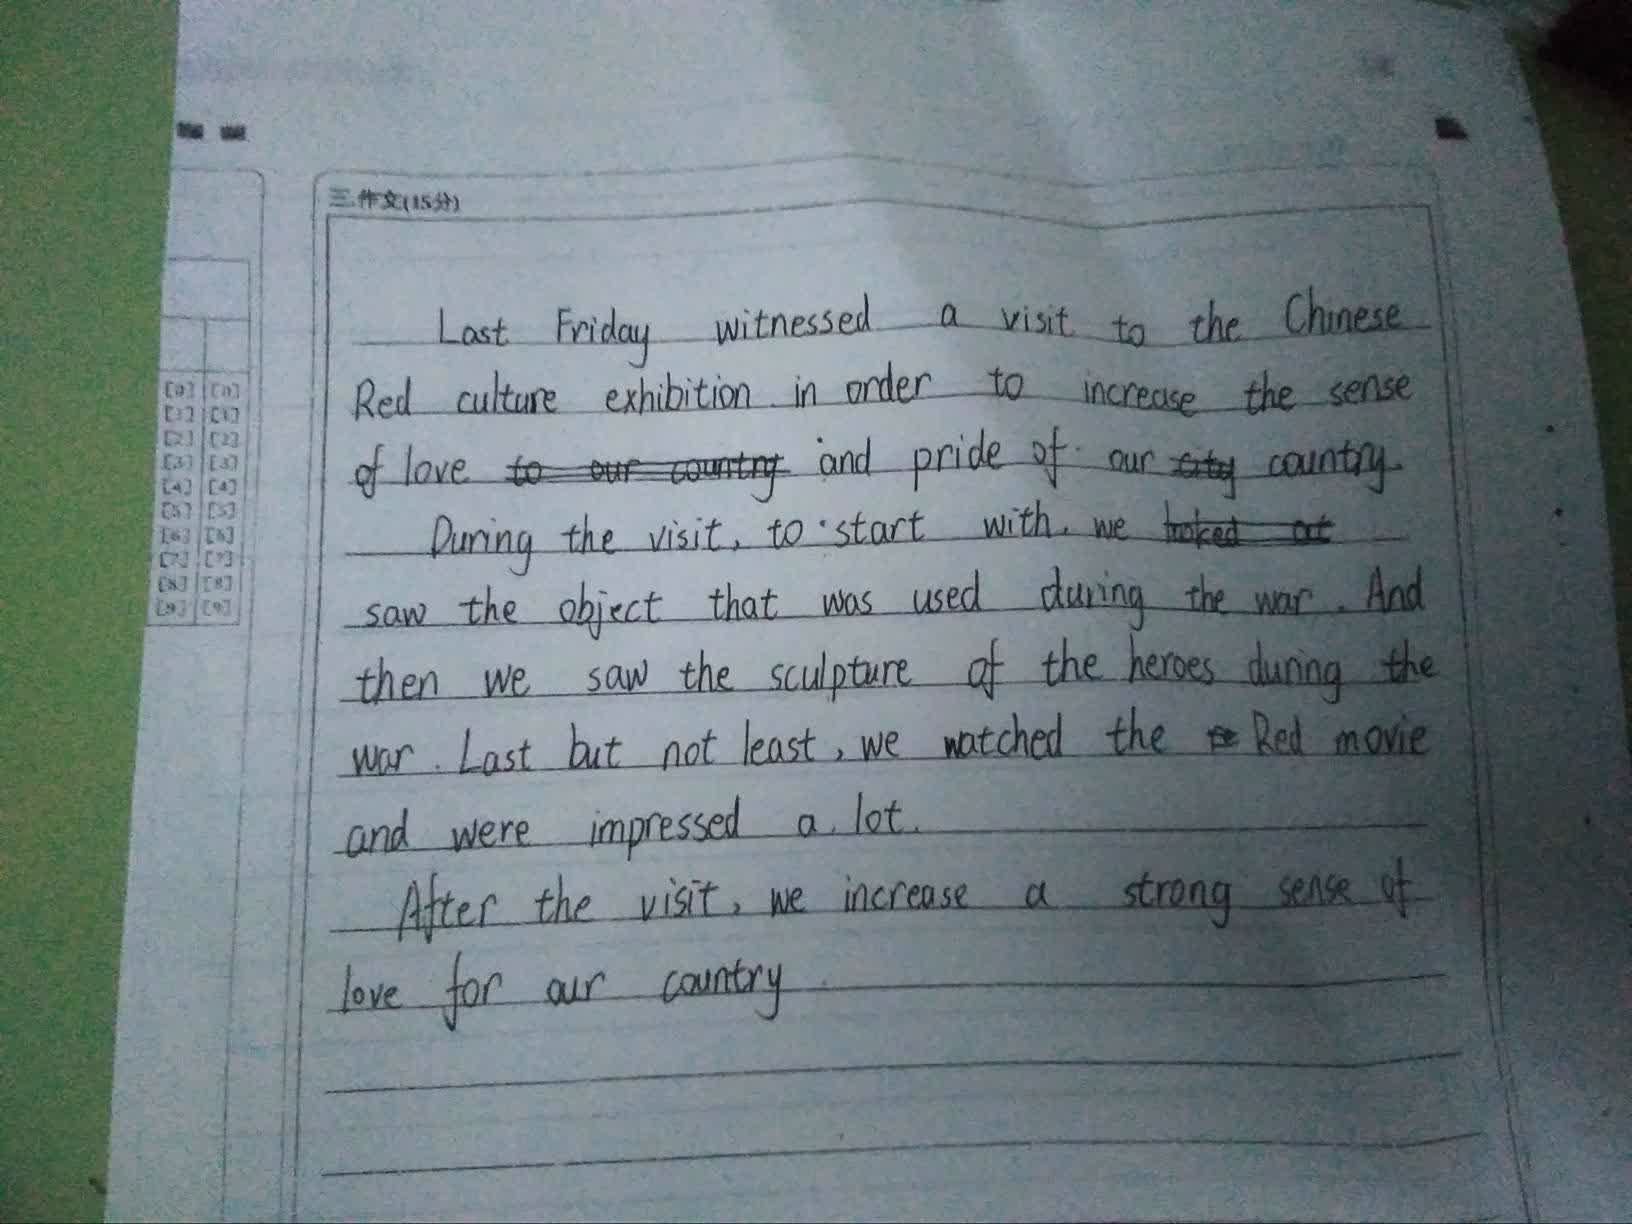 三.作文(15分)
Last Friday witnessed a visit to the Chinese
Red culture exhibition in order to increase the sense
of love to our country and pride of our city country.
During the visit, to start with, we looked at
saw the object that was used during the war. And
then we saw the sculpture of the heroes during the
war. Last but not least, we watched the Red movie
and were impressed a lot.
After the visit, we increase a strong sense of
love for our country.
[0] [0]
[1] [1]
[2] [2]
[3] [3]
[4] [4]
[5] [5]
[6] [6]
[7] [7]
[8] [8]
[9] [9]